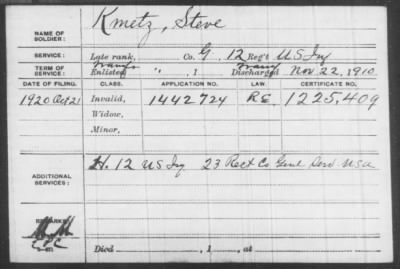 NAME OF SOLDIER: Kmetz, Steve
SERVICE: Late rank, Co. G, 12 Reg't US Inf
TERM OF SERVICE: Enlisted " , 1 Discharged Nov. 22, 1910
DATE OF FILING. CLASS. APPLICATION NO. LAW. CERTIFICATE NO.
1920 Oct 21 Invalid, 1442724 1225,409
Widow,
Minor,
ADDITIONAL SERVICES: H. 12 US Inf 23 Rect Co Genl Serv USA
REMARKS:
Died , 1 , at